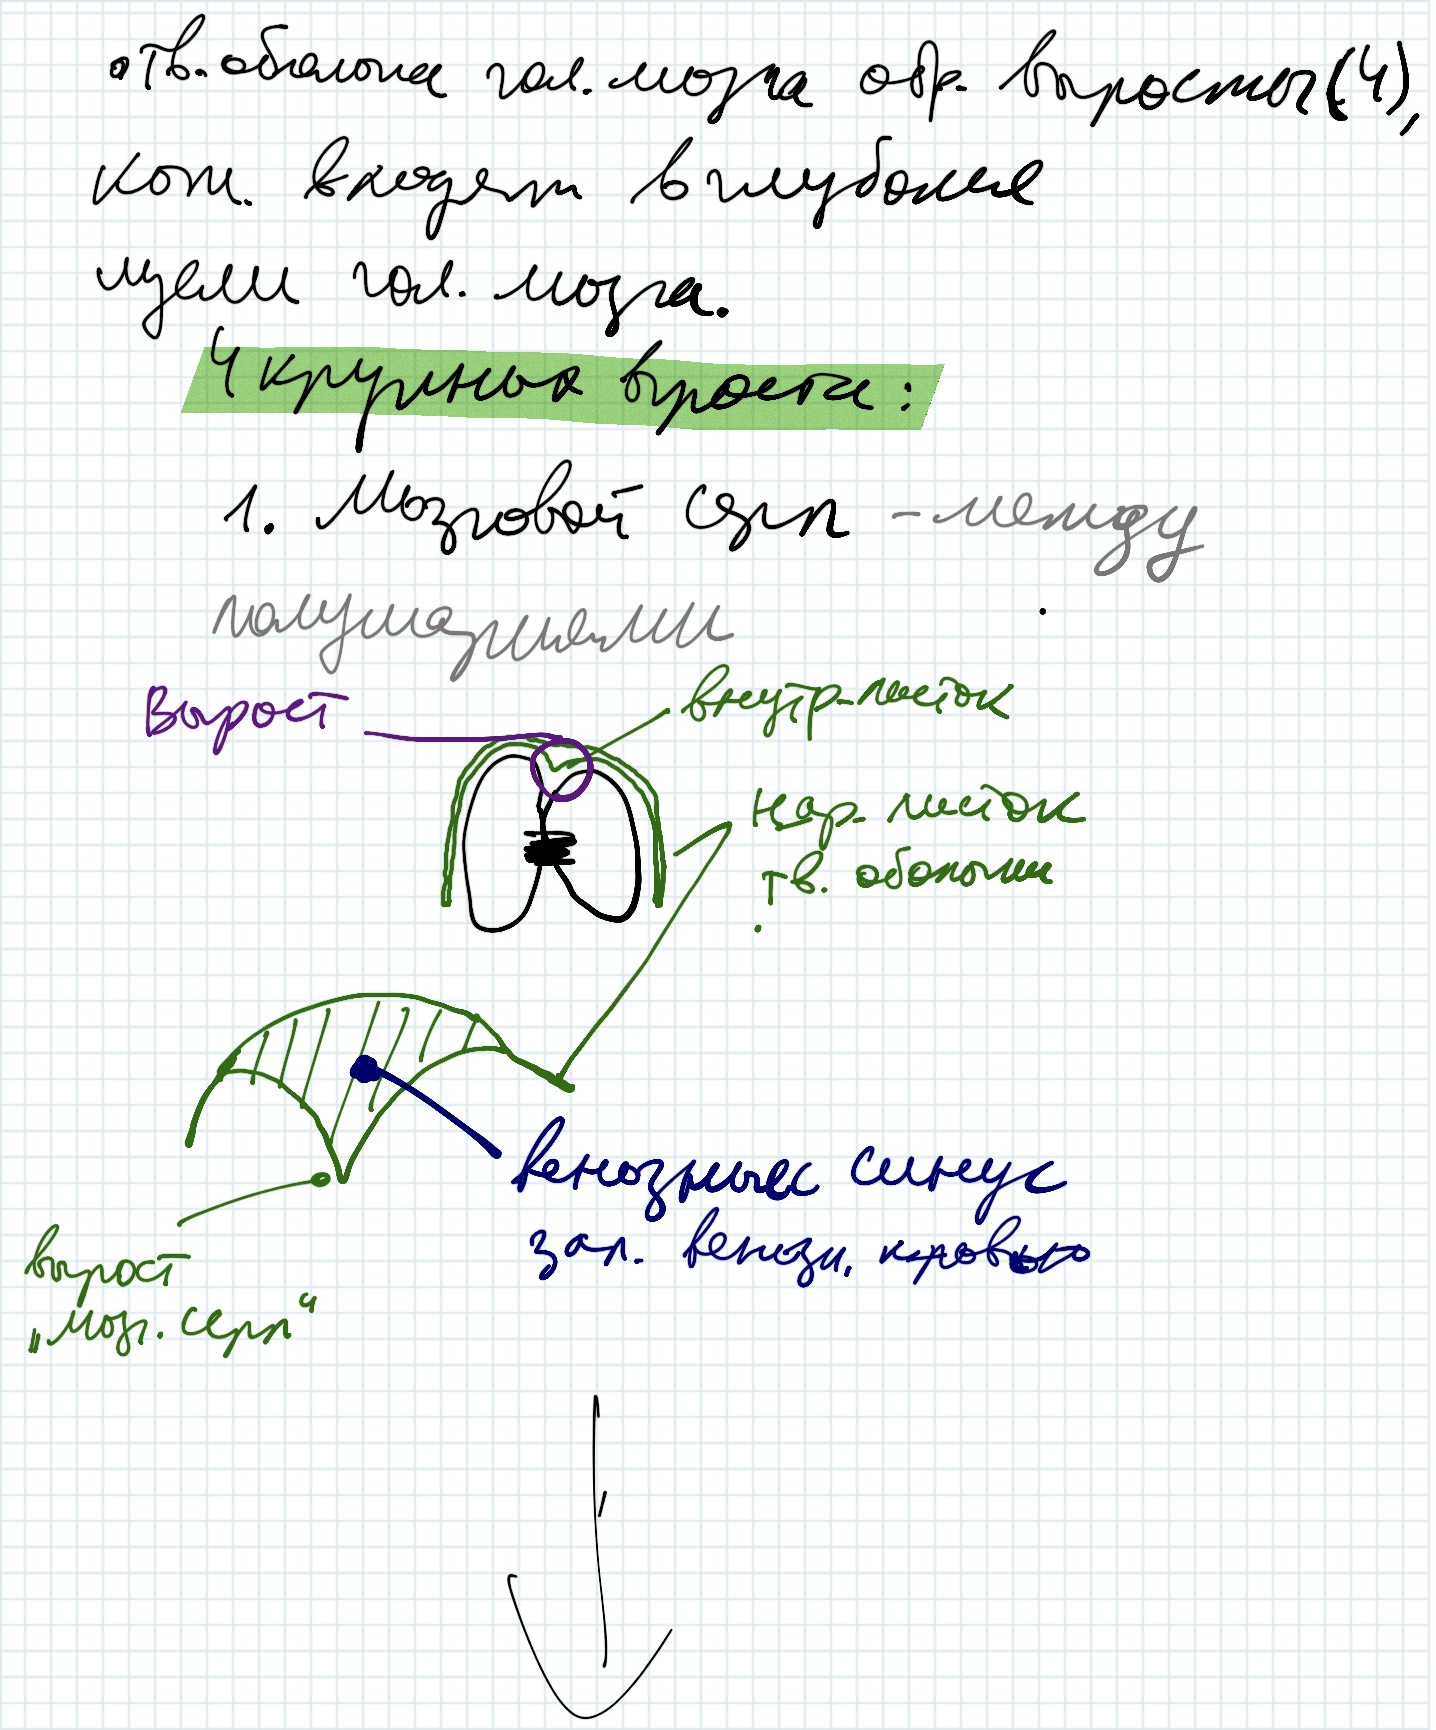 • тв. оболочка гол. мозга обр. выросты (4),
кот. входят в глубокие
щели гол. мозга.
4 крупных выроста:
1. Мозговой серп - между
полушариями
Вырост
внутр. листок
нар. листок
тв. оболочки
венозный синус
зап. венозн. кровью
вырост
„мозг. серп“